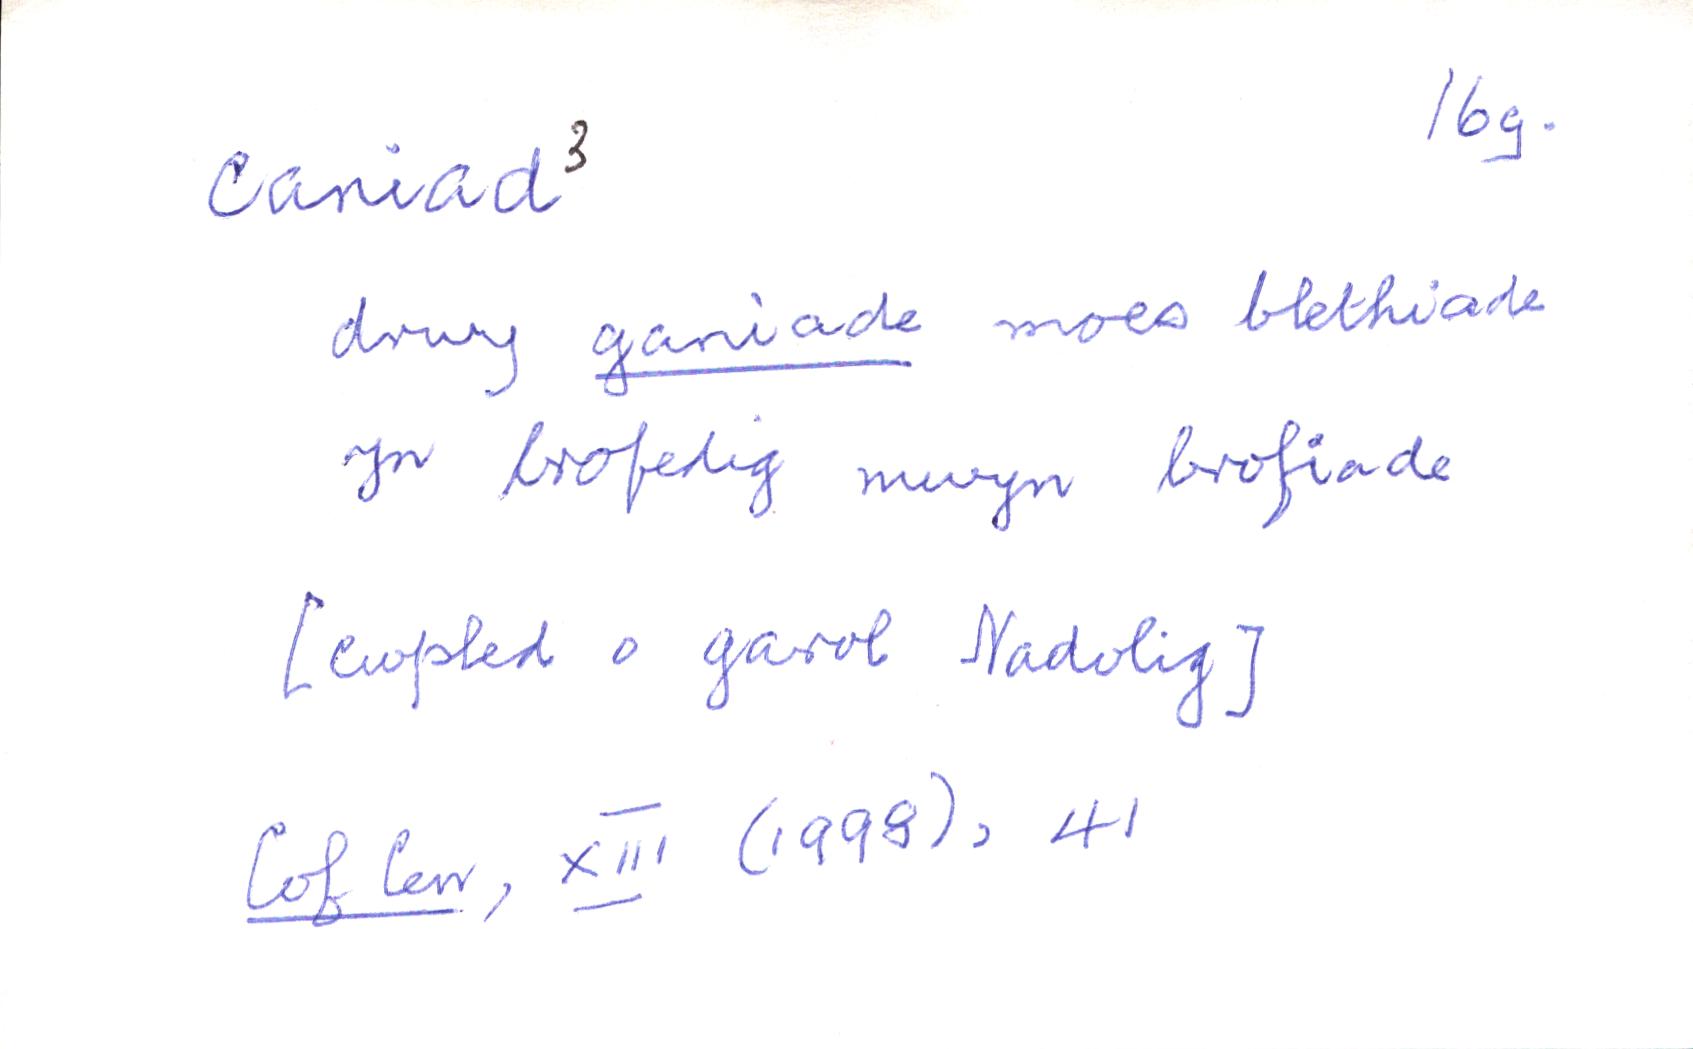 16g.
caniad³
drwy ganiade moes blethiade
yn brofedig mwyn brofiade
[cwpled o garol Nadolig]
Cof Cen, XIII (1998), 41